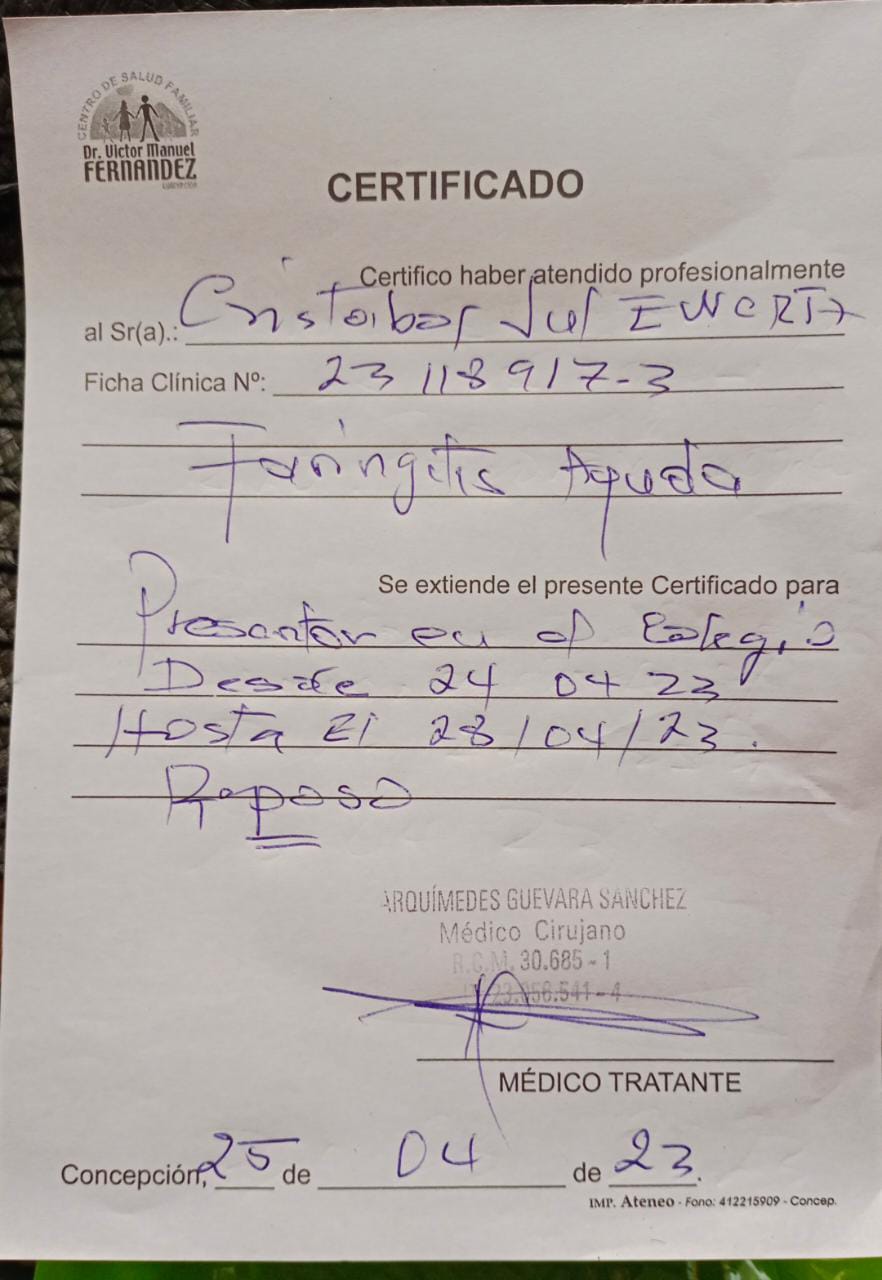 CENTRO DE SALUD FAMILIAR
Dr. Victor Manuel
FERNANDEZ
CONCEPCIÓN
CERTIFICADO
Certifico haber atendido profesionalmente
al Sr(a).: Cristobar
Ficha Clínica Nº: 23 118 917-3
Faringitis Aguda
Se extiende el presente Certificado para
Presentar en el Colegio
Desde 24 04 23
Hasta El 28/04/23.
Reposo
ARQUÍMEDES GUEVARA SANCHEZ
Médico Cirujano
R.C.M. 30.685-1
23.956.541-4
MÉDICO TRATANTE
Concepción, 25 de 04 de 23.
IMP. Ateneo - Fono: 412215909 - Concep.